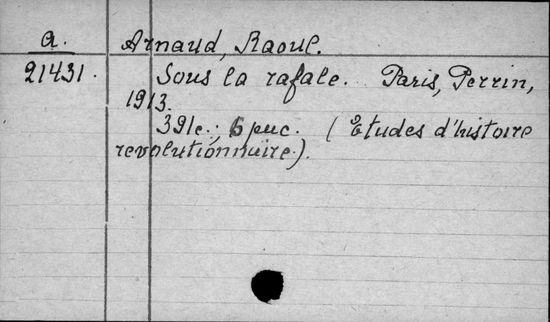 a. Arnaud, Raoul.
21431. Sous la rafale. Paris, Perrin,
1913.
391c.; 6 рис. (Etudes d'histoire
revolutionnuire.).